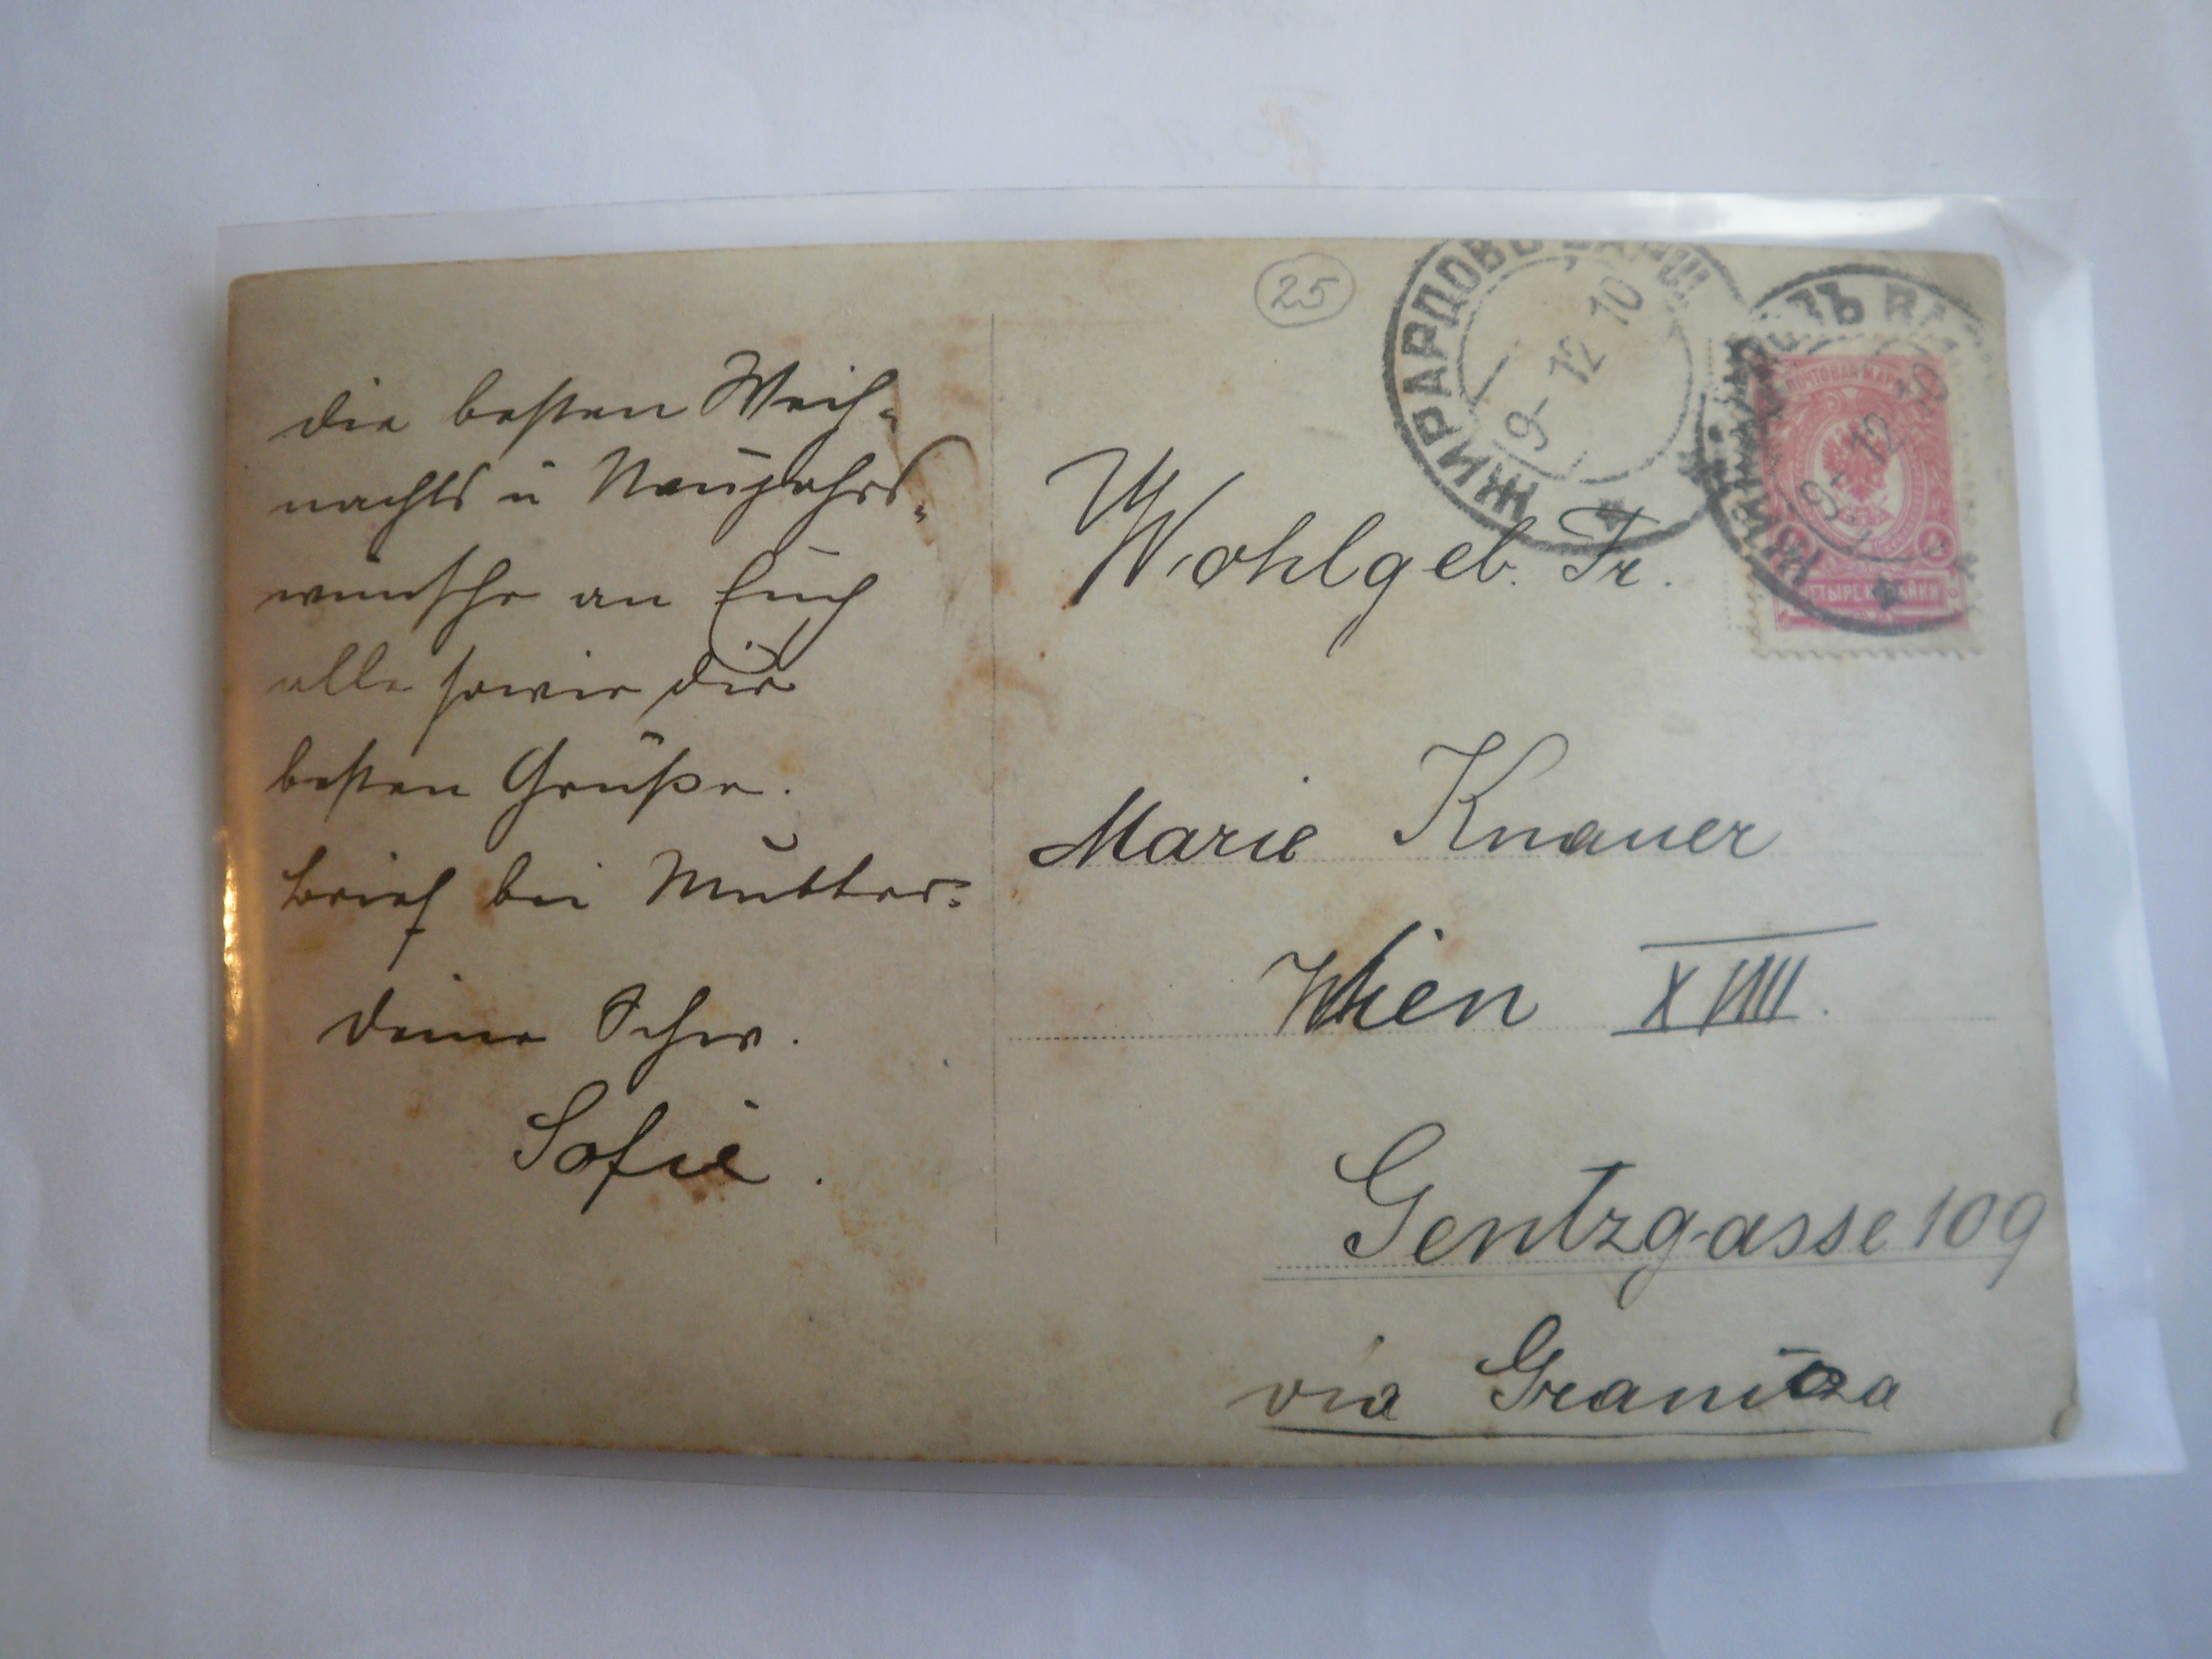 die besten Weih-
nachts u Neujahrs-
wünsche an Euch
alle sowie die
besten Grüße.
Brief bei Mutter.
Deine Schw.
Sofie.
25
ЖИРАРДОВЪ ВАРШ
9-12 10
ЖИ
9-12 10
ПОЧТОВАЯ МАРКА
ЧЕТЫРЕ КОПѢЙКИ
Wohlgeb. Fr.
Marie Knauer
Wien XVIII.
Gentzgasse 109
via Granitza